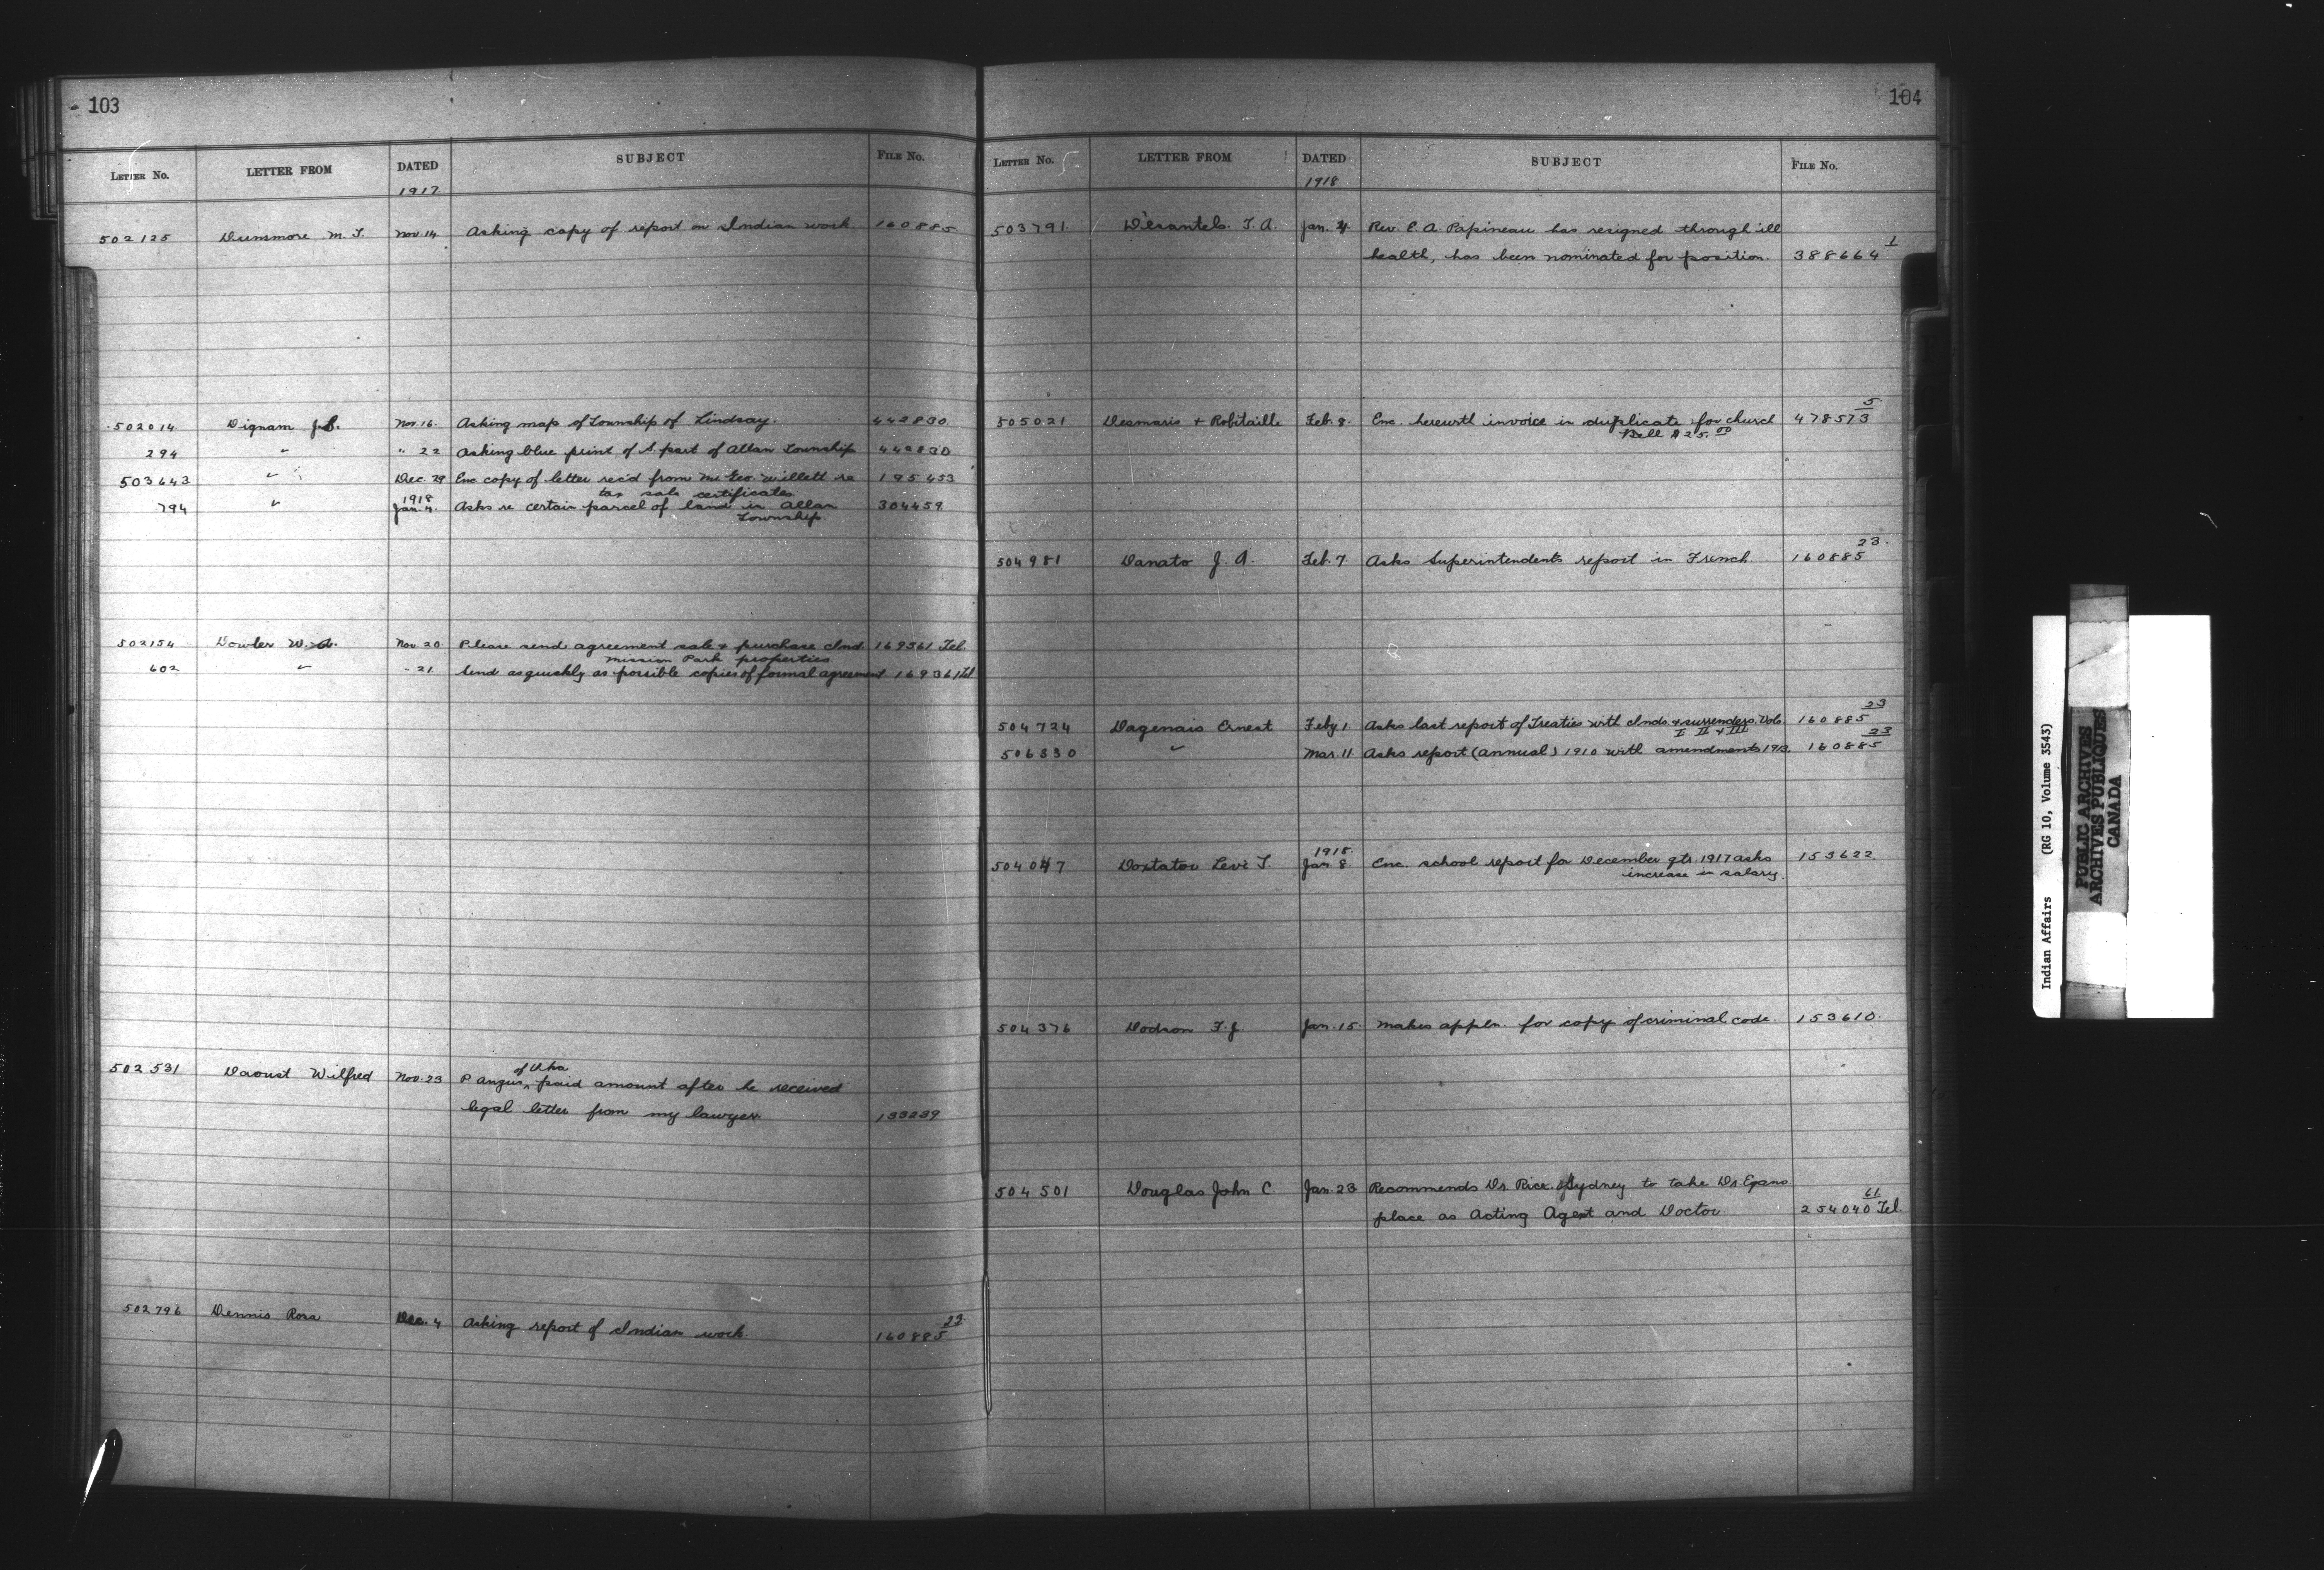 103
LETTER No. LETTER FROM DATED SUBJECT FILE No.
1917
502125 Dunsmore M. T. Nov. 14 Asking copy of report on Indian work 160885
502014 Dignam J. Nov. 16. Asking map of Township of Lindsay. 442830
294 " " 22 Asking blue print of S. part of Allan Township 442830
503643 " Dec. 29 Enc copy of letter rec'd from Mr Geo. Willett re 195453
tax sale certificates
1918
794 " Jan. 4. Asks re certain parcel of land in Allan 304459
Township.
502154 Dowler W. A. Nov 20. Please send agreement sale & purchase Ind. 169361 Tel.
Mission Park properties
602 " " 21. Send as quickly as possible copies of formal agreement 169361 Tel.
of Uka
502531 Daoust Wilfred Nov. 23 P Angus, ^ paid amount after he received
legal letter from my lawyer. 133239
502796 Dennis Rosa Dec. 4 Asking report of Indian work. 160885 22
104
LETTER No. LETTER FROM DATED SUBJECT FILE No.
1918
503791 Désautels. T. A. Jan. 4. Rev. P. A. Papineau has resigned through ill
health, has been nominated for position. 388664 1
505021 Desmaris + Robitaille Feb. 8. Enc. herewith invoice in duplicate for church 478573 5
Bell $25.00
504981 Danato J. A. Feb. 7 Asks Superintendents report in French. 160885 23.
504724 Dagenais Ernest Feby 1 Asks last report of Treaties with Inds. & surrenders. Vols. 160885 23
I II & III
506830 " Mar. 11 Asks report (annual) 1910 with amendments 1913. 160885 23
1918.
504047 Doxtator Levi T. Jan. 8. Enc. school report for December qtr. 1917 asks 153622
increase in salary.
504376 Dodson F. J. Jan. 15. Makes appln. for copy of criminal code. 153610.
504501 Douglas John C. Jan. 23 Recommends Dr. Rice. of Sydney to take Dr
place as Acting Agent and Doctor 254040 61 Tel.
Indian Affairs (RG 10, Volume 3543)
PUBLIC ARCHIVES
ARCHIVES PUBLIQUES
CANADA